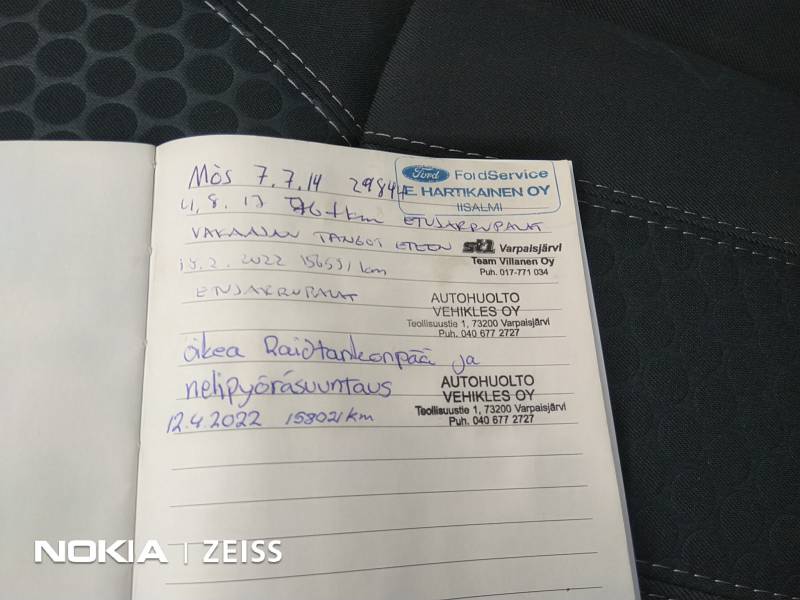 Mös 7.7.14
Ford FordService
E. HARTIKAINEN OY
IISALMI
km ETUJARRUPALAT
VAKAAJAN TANGOT ETEEN
st1 Varpaisjärvi
Team Villanen Oy
Puh. 017-771 034
.2.2022 156551 km
ETUJARRUPALAT
AUTOHUOLTO
VEHIKLES OY
Teollisuustie 1, 73200 Varpaisjärvi
Puh. 040 677 2727
oikea Raidtankonpää ja
nelipyöräsuuntaus
12.4.2022 158021 km
AUTOHUOLTO
VEHIKLES OY
Teollisuustie 1, 73200 Varpaisjärvi
Puh. 040 677 2727
NOKIA | ZEISS